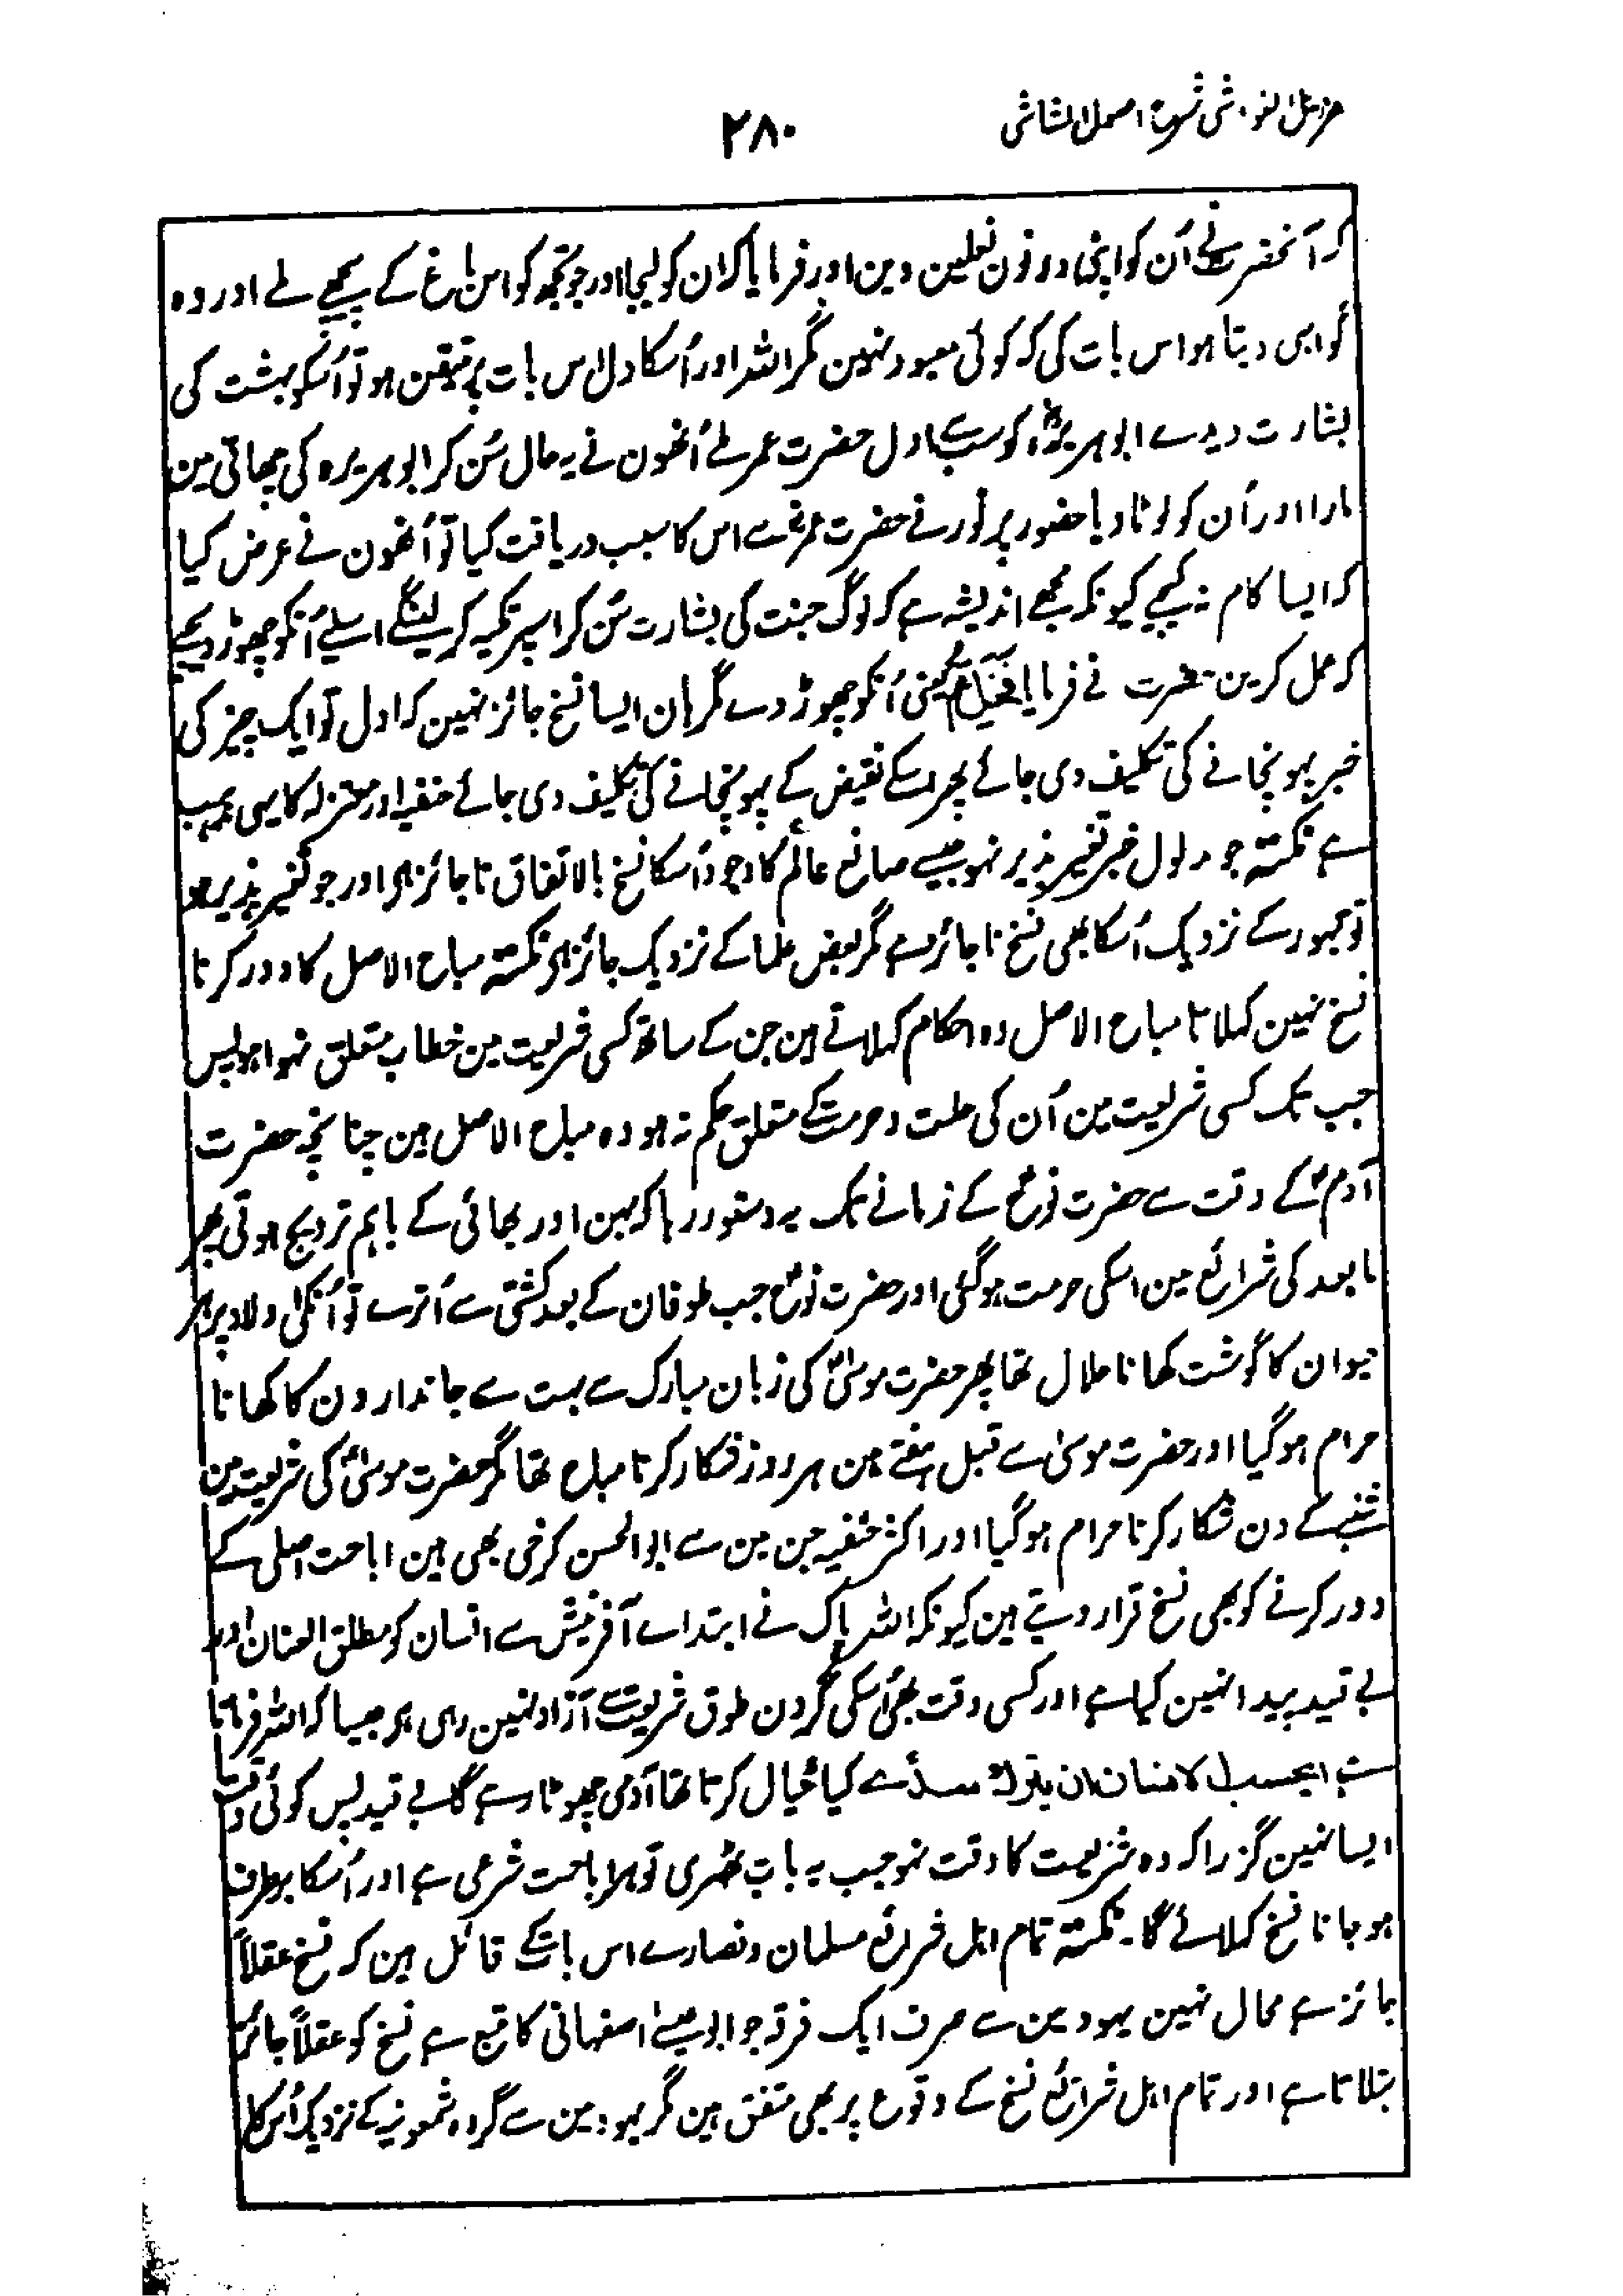 مزیل الغواشی شرح اصول الشاشی
۲۸۰
کہ آنحضرت نے اُن کو اپنی دونون نعلین دین اور فرمایا کہ ان کو لیجا اور جو تجھ کو اس باغ کے پیچھے ملے اور وہ
گواہی دیتا ہو اس بات کی کہ کوئی معبود نہین مگر اللہ اور اُسکا دل اس بات پر متیقن ہو تو اُسکو بہشت کی
بشارت دیدے ابو ہریرہؓ کو سب سے اول حضرت عمر ملے اُنھون نے یہ حال سُن کر ابو ہریرہ کی چھاتی مین
مارا اور اُن کو لوٹا دیا حضور پر نور نے حضرت عمرؓ سے اس کا سبب دریافت کیا تو اُنھون نے عرض کیا
کہ ایسا کام نہ کیجیے کیونکہ مجھے اندیشہ ہے کہ لوگ جنت کی بشارت سُن کر اسپر تکیہ کر لینگے اسلیے اُنکو چھوڑ دیجیے
کہ عمل کرین حضرت نے فرمایا فَخَلِّهِمْ یعنی اُنکو چھوڑ دے مگر ہان ایسا نسخ جائز نہین کہ اول تو ایک چیز کی
خبر پہونچانے کی تکلیف دی جائے پھر اسکے نقیض کے پہونچانے کی تکلیف دی جائے حنفیہ اور معتزلہ کا یہی مذہب
ہے نکتہ جو مدلول خبر تغیر پذیر نہو جیسے صانع عالم کا وجود اُسکا نسخ بالاتفاق ناجائز ہے اور جو تغیر پذیر ہو
تو جمہور کے نزدیک اُسکا بھی نسخ ناجائز ہے مگر بعض علما کے نزدیک جائز ہے نکتہ مباح الاصل کا دور کرنا
نسخ نہین کہلاتا مباح الاصل وہ احکام کہلاتے ہین جن کے ساتھ کسی شریعت مین خطاب متعلق نہوا ہو پس
جب تک کسی شریعت مین اُن کی حلت و حرمت کے متعلق حکم نہ ہو وہ مباح الاصل ہین چنانچہ حضرت
آدمؑ کے وقت سے حضرت نوحؑ کے زمانے تک یہ دستور رہا کہ بہن اور بھائی کے باہم تزویج ہوتی پھر
مابعد کی شرائع مین اسکی حرمت ہوگئی اور حضرت نوحؑ جب طوفان کے بعد کشتی سے اُترے تو اُنکی اولاد پر ہر
حیوان کا گوشت کھانا حلال تھا پھر حضرت موسیٰؑ کی زبان مبارک سے بہت سے جاندارون کا کھانا
حرام ہوگیا اور حضرت موسیٰ سے قبل ہفتے مین ہر روز شکار کرنا مباح تھا مگر حضرت موسیٰؑ کی شریعت مین
شنبے کے دن شکار کرنا حرام ہوگیا اور اکثر حنفیہ جن مین سے ابو الحسن کرخی بھی ہین اباحت اصلی کے
دور کرنے کو بھی نسخ قرار دیتے ہین کیونکہ اللہ پاک نے ابتداے آفرینش سے انسان کو مطلق العنان اور
بے قید پیدا نہین کیا ہے اور کسی وقت بھی اُسکی گردن طوق شریعت سے آزاد نہین رہی ہے جیسا کہ اللہ فرماتا
ہے ایحسب الانسان ان یترک سدے کیا خیال کرتا تھا آدمی چھوٹا رہے گا بے قید پس کوئی وقت
ایسا نہین گزرا کہ وہ شریعت کا وقت نہو جب یہ بات ٹھہری تو ہر اباحت شرعی ہے اور اُسکا برطرف
ہو جانا نسخ کہلائے گا۔ نکتہ تمام اہل شرائع مسلمان و نصارے اس بات کے قائل ہین کہ نسخ عقلاً
جائز ہے محال نہین یہود مین سے صرف ایک فرقہ جو ابو عیسیٰ اصفہانی کا متبع ہے نسخ کو عقلاً جائز
بتلاتا ہے اور تمام اہل شرائع نسخ کے وقوع پر بھی متفق ہین مگر یہود مین سے گروہ شمعونیہ کے نزدیک اُس کا